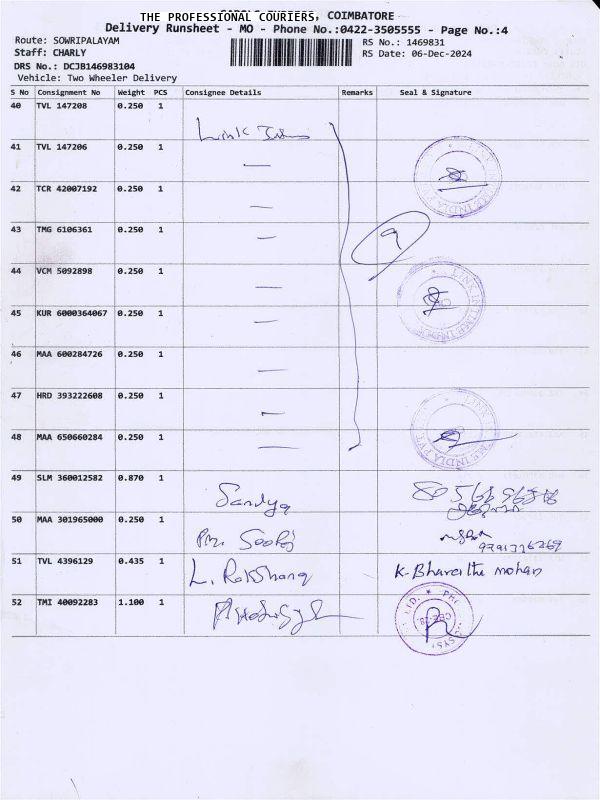 THE PROFESSIONAL COURIERS, COIMBATORE
Delivery Runsheet - MO - Phone No.:0422-3505555 - Page No.:4
Route: SOWRIPALAYAM
RS No.: 1469831
Staff: CHARLY
RS Date: 06-Dec-2024
DRS No.: DCJB146983104
Vehicle: Two Wheeler Delivery
S No Consignment No Weight PCS Consignee Details Remarks Seal & Signature
40 TVL 147208 0.250 1
Link
41 TVL 147206 0.250 1
42 TCR 42007192 0.250 1
43 TMG 6106361 0.250 1
9
44 VCM 5092898 0.250 1
LINK INTIME INDIA
45 KUR 6000364067 0.250 1
46 MAA 600284726 0.250 1
47 HRD 393222608 0.250 1
LINK INTIME INDIA PVT
48 MAA 650660284 0.250 1
49 SLM 360012582 0.870 1
Sandya
50 MAA 301965000 0.250 1
51 TVL 4396129 0.435 1
L.
K. Bharathi mohan
52 TMI 40092283 1.100 1